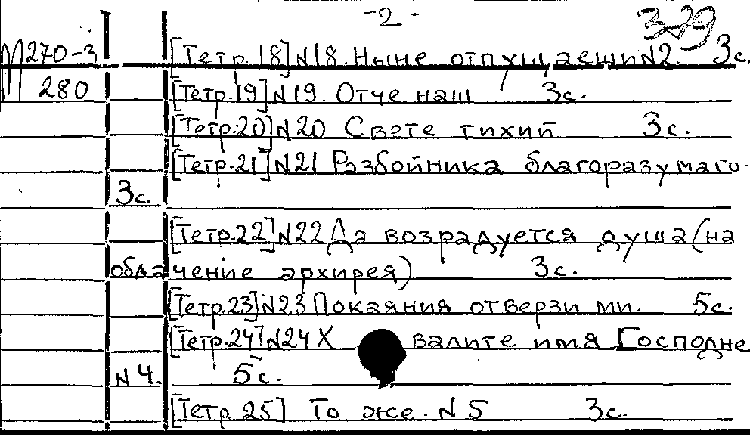 -2-
329
М270-3 [Тетр.18] N18. Ныне отпущаеши N2. 3с.
280 [Тетр.19] N19. Отче наш 3с.
[Тетр.20] N20 Свете тихий 3с.
[Тетр.21] N21 Разбойника благоразумаго.
3с.
[Тетр.22] N22 Да возрадуется душа (на
облачение архирея) 3с.
[Тетр.23] N23 Покаяния отверзи ми. 5с.
[Тетр.24] N24 Хвалите имя Господне
N4. 5с.
[Тетр.25] То же. N5 3с.